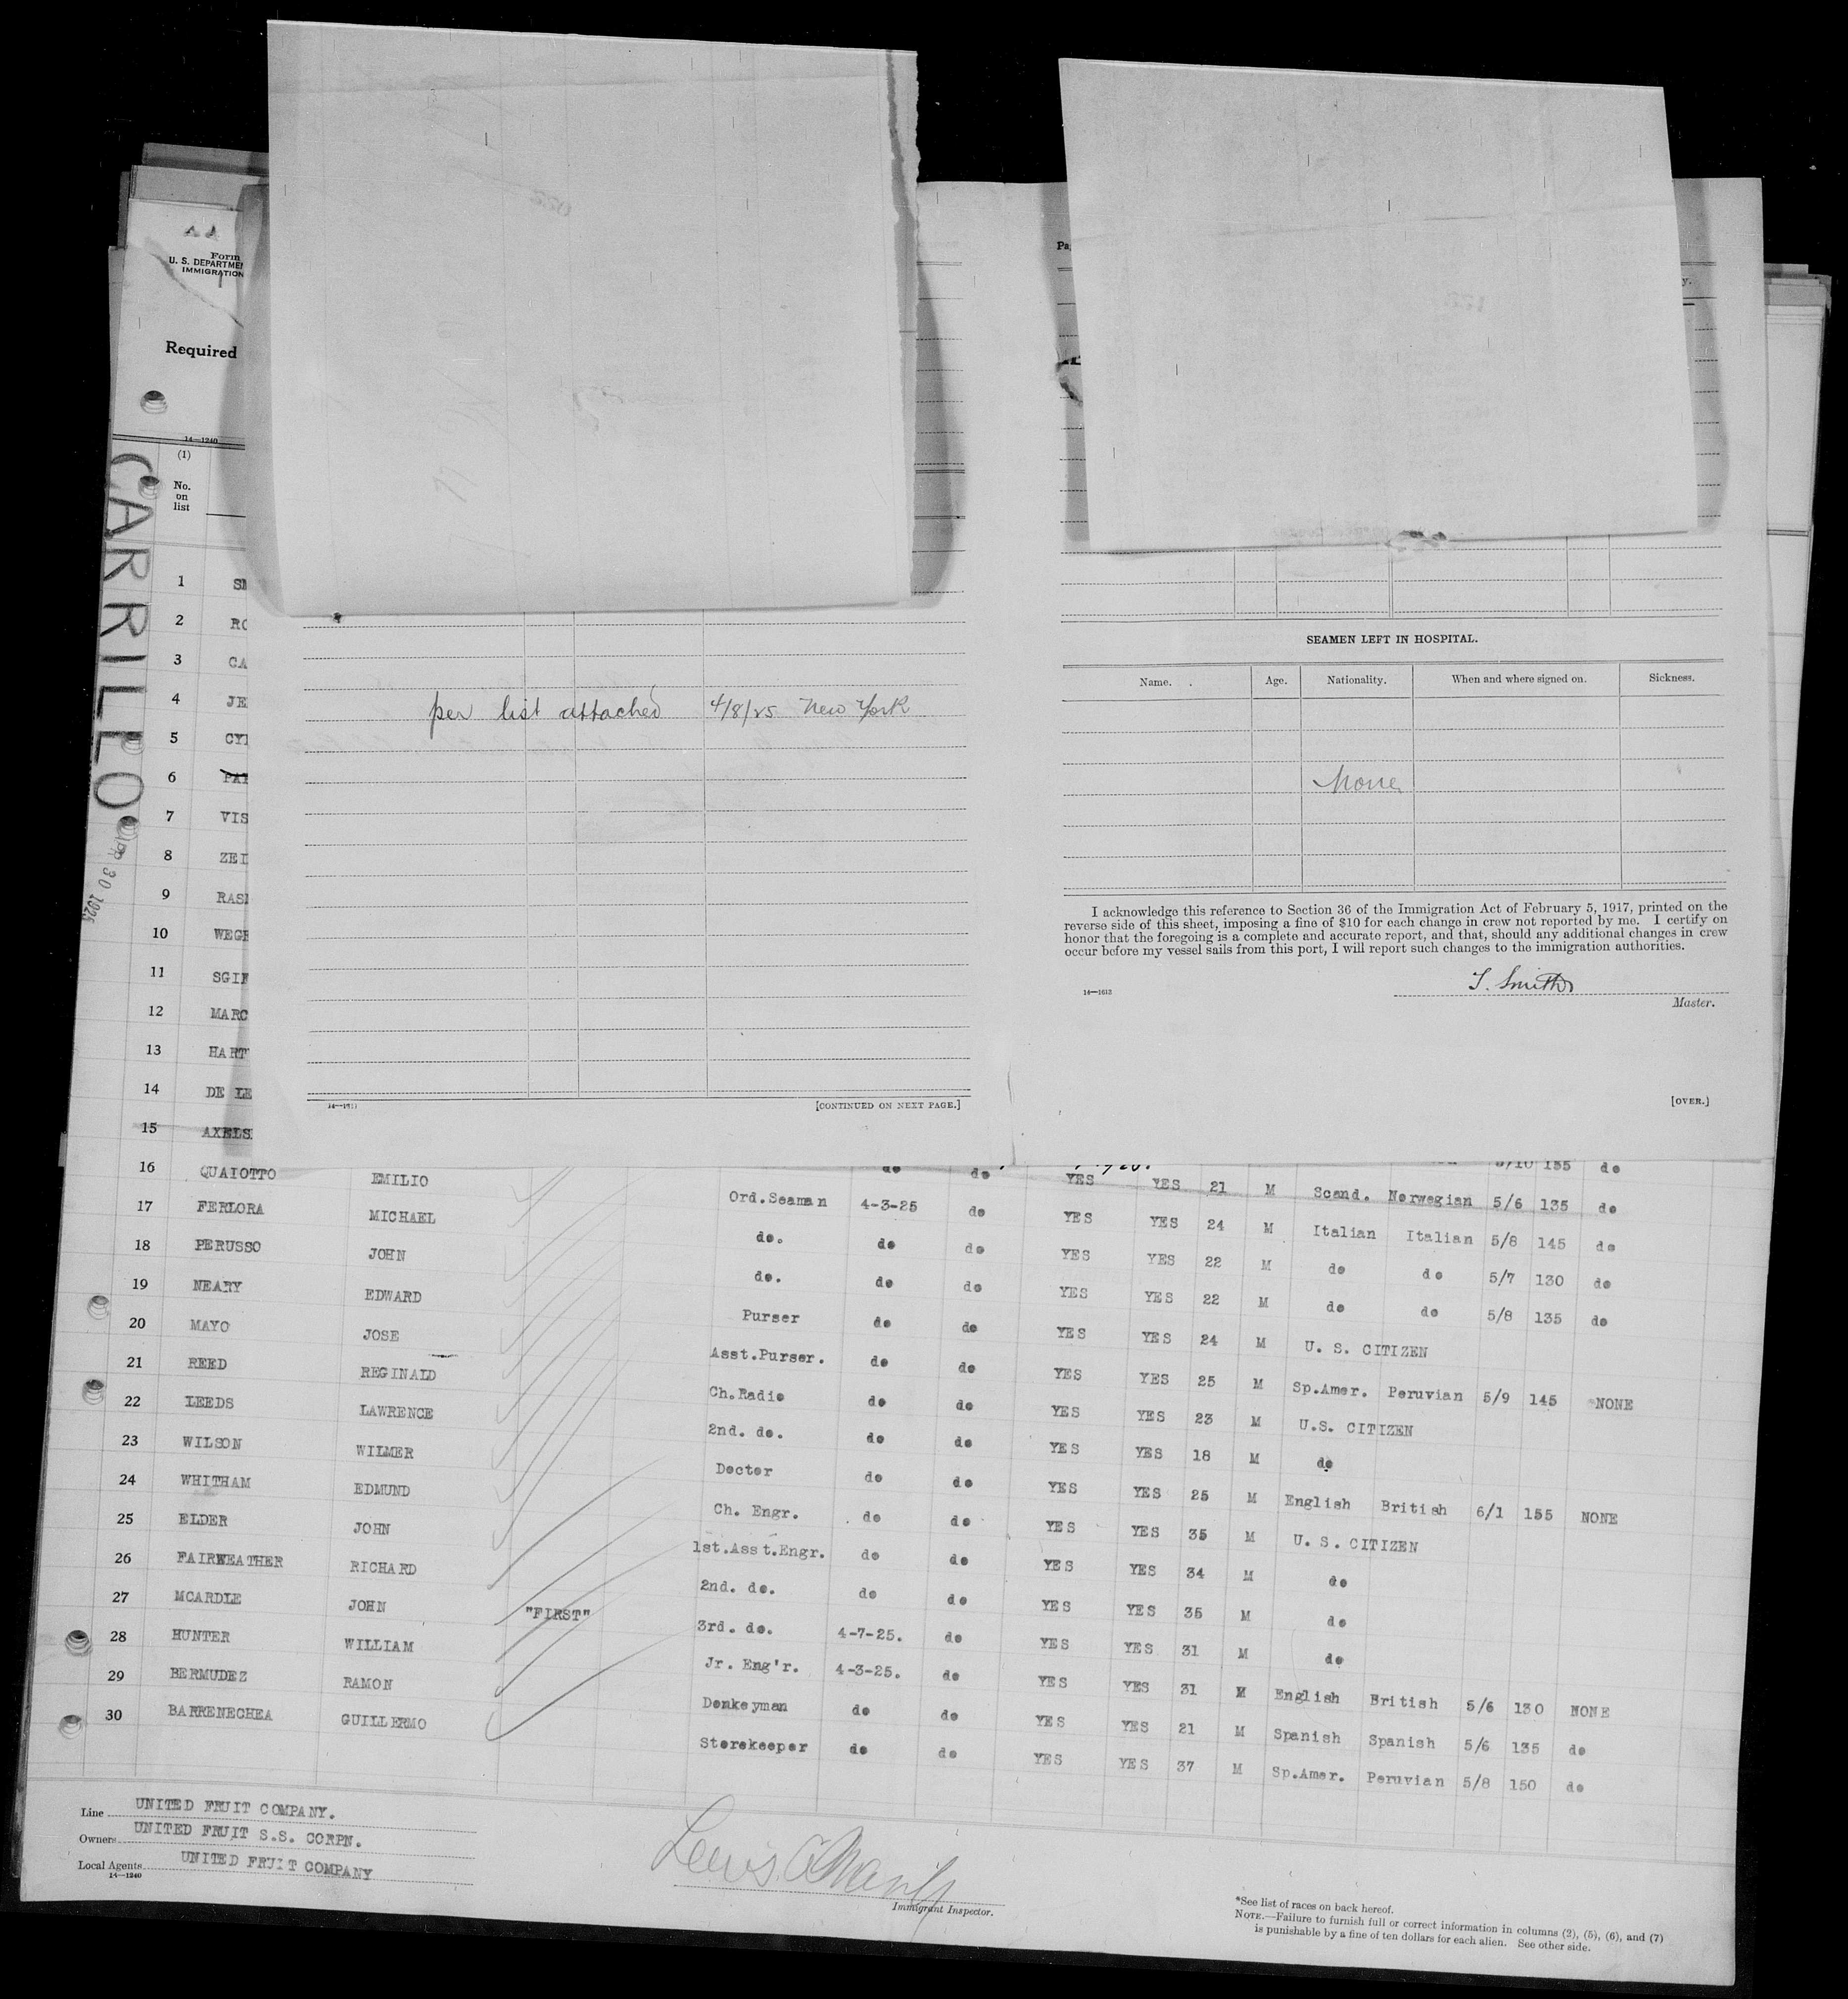 Form
U. S. DEPARTME
IMMIGRATION
Required
14—1240
(1)
No.
on
list
CARRILLO
APR 30 1925
1 SM
2 RO
3 CA
4 JE
5 CY
6 PA
7 VIS
8 ZEI
9 RAS
10 WEGE
11 SGI
12 MARC
13 HART
14 DE LE
per list attached 4/8/25 New York
14—1611
[CONTINUED ON NEXT PAGE.]
Pa
y.
SEAMEN LEFT IN HOSPITAL.
Name. Age. Nationality. When and where signed on. Sickness.
None
I acknowledge this reference to Section 36 of the Immigration Act of February 5, 1917, printed on the
reverse side of this sheet, imposing a fine of $10 for each change in crew not reported by me. I certify on
honor that the foregoing is a complete and accurate report, and that, should any additional changes in crew
occur before my vessel sails from this port, I will report such changes to the immigration authorities.
T. Smith
14—1612
Master.
[OVER.]
5/10 155 do
15 AXELS do do YES YES 21 M Scand. Norwegian 5/6 135 do
16 QUAIOTTO EMILIO Ord.Seaman 4-3-25 do YES YES 24 M Italian Italian 5/8 145 do
17 FERLORA MICHAEL do. do do YES YES 22 M do do 5/7 130 do
18 PERUSSO JOHN do. do do YES YES 22 M do do 5/8 135 do
19 NEARY EDWARD Purser do do YES YES 24 M U. S. CITIZEN
20 MAYO JOSE Asst.Purser. do do YES YES 25 M Sp.Amer. Peruvian 5/9 145 NONE
21 REED REGINALD Ch.Radio do do YES YES 23 M U.S. CITIZEN
22 LEEDS LAWRENCE 2nd. do. do do YES YES 18 M do
23 WILSON WILMER Doctor do do YES YES 25 M English British 6/1 155 NONE
24 WHITHAM EDMUND Ch. Engr. do do YES YES 35 M U. S. CITIZEN
25 ELDER JOHN 1st.Asst.Engr. do do YES YES 34 M do
26 FAIRWEATHER RICHARD 2nd. do. do do YES YES 35 M do
27 MCARDLE JOHN "FIRST" 3rd. do. 4-7-25. do YES YES 31 M do
28 HUNTER WILLIAM Jr. Eng'r. 4-3-25. do YES YES 31 M English British 5/6 130 NONE
29 BERMUDEZ RAMON Donkeyman do do YES YES 21 M Spanish Spanish 5/6 135 do
30 BARRENECHEA GUILLERMO Storekeeper do do YES YES 37 M Sp.Amer. Peruvian 5/8 150 do
Line UNITED FRUIT COMPANY.
Owners UNITED FRUIT S.S. CORPN.
Local Agents UNITED FRUIT COMPANY
14—1240
Immigrant Inspector.
*See list of races on back hereof.
NOTE.—Failure to furnish full or correct information in columns (2), (5), (6), and (7)
is punishable by a fine of ten dollars for each alien. See other side.